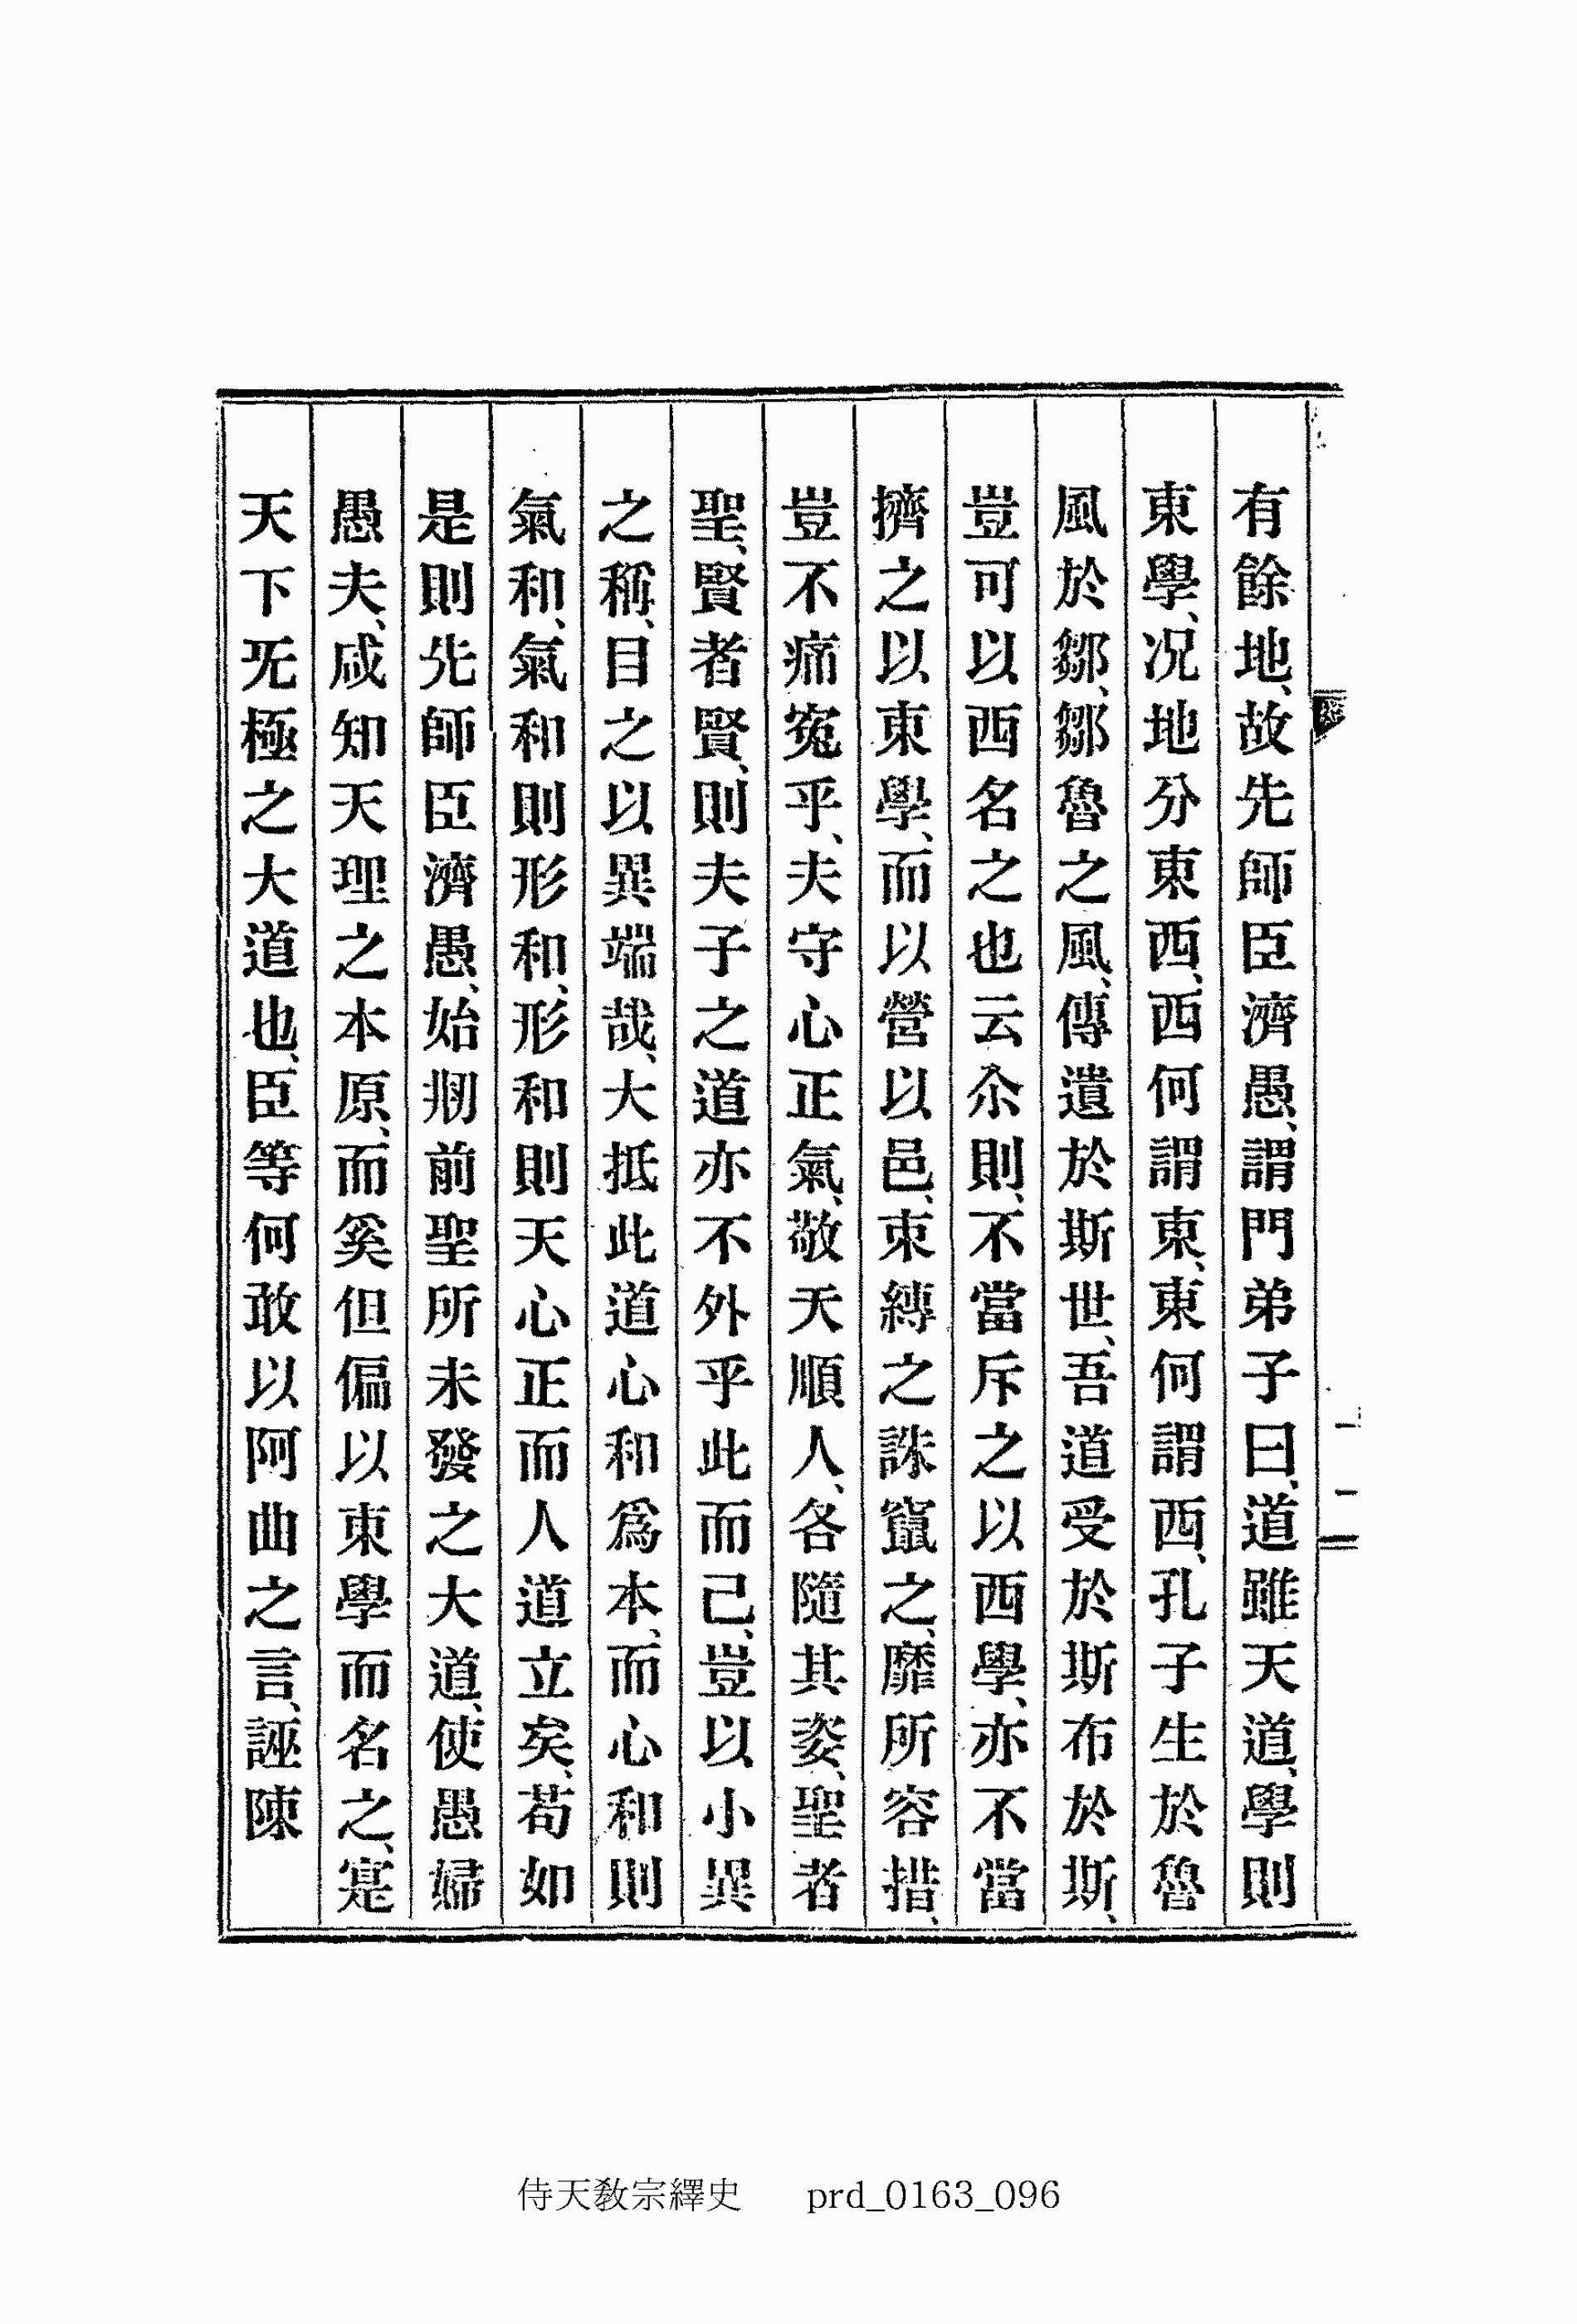 有餘地、故先師臣濟愚、謂門弟子曰、道雖天道、學則
東學、況地分東西、西何謂東、東何謂西、孔子生於魯
風於鄒、鄒魯之風、傳遺於斯世、吾道受於斯布於斯、
豈可以西名之也云尒則、不當斥之以西學、亦不當
擠之以東學、而以營以邑、束縛之誅竄之、靡所容措、
豈不痛寃乎、夫守心正氣、敬天順人、各隨其姿、聖者
聖、賢者賢、則夫子之道亦不外乎此而已、豈以小異
之稱、目之以異端哉、大抵此道心和爲本、而心和則
氣和、氣和則形和、形和則天心正而人道立矣、苟如
是則先師臣濟愚、始刱前聖所未發之大道、使愚婦
愚夫、咸知天理之本原、而奚但偏以東學而名之、寔
天下旡極之大道也、臣等何敢以阿曲之言、誣陳
侍天教宗繹史 prd_0163_096